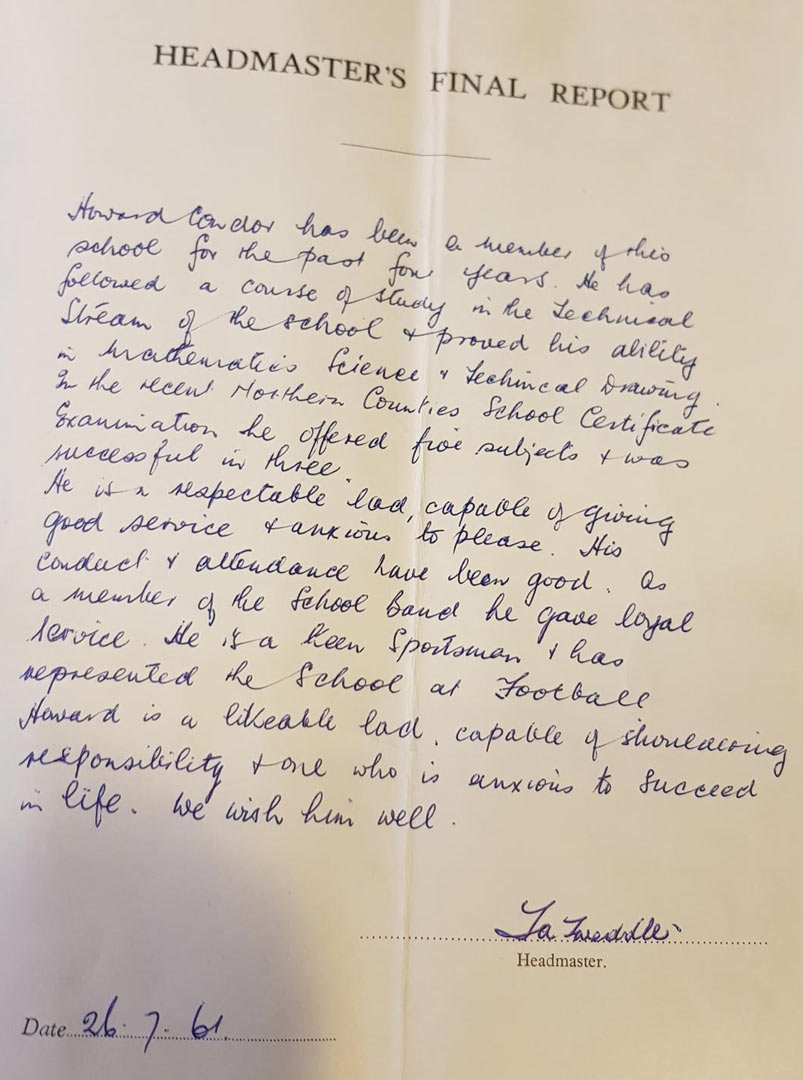 HEADMASTER'S FINAL REPORT
Howard Condor has been a member of this
school for the past four years. He has
followed a course of study in the Technical
Stream of the school & proved his ability
in Mathematics Science & Technical Drawing.
In the recent Northern Counties School Certificate
Examination he offered five subjects & was
successful in three.
He is a respectable lad, capable of giving
good service & anxious to please. His
conduct & attendance have been good. As
a member of the School band he gave loyal
service. He is a keen Sportsman & has
represented the School at Football
Howard is a likeable lad, capable of shouldering
responsibility & one who is anxious to succeed
in life. We wish him well.
Headmaster.
Date 26.7.61.